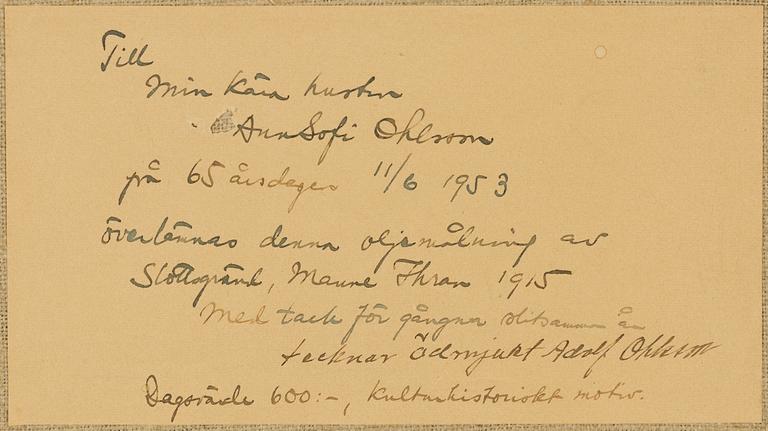 Till
Min Kära hustru
AnnSofi Ohlsson
på 65 årsdagen 11/6 1953
överlämnas denna oljemålning av
Slottsgränd, Manne Ihran 1915
Med tack för gångna slitsamma år
tecknar Ödmjukt Adolf Ohlsson
Dagsvärde 600:-, Kulturhistoriskt motiv.